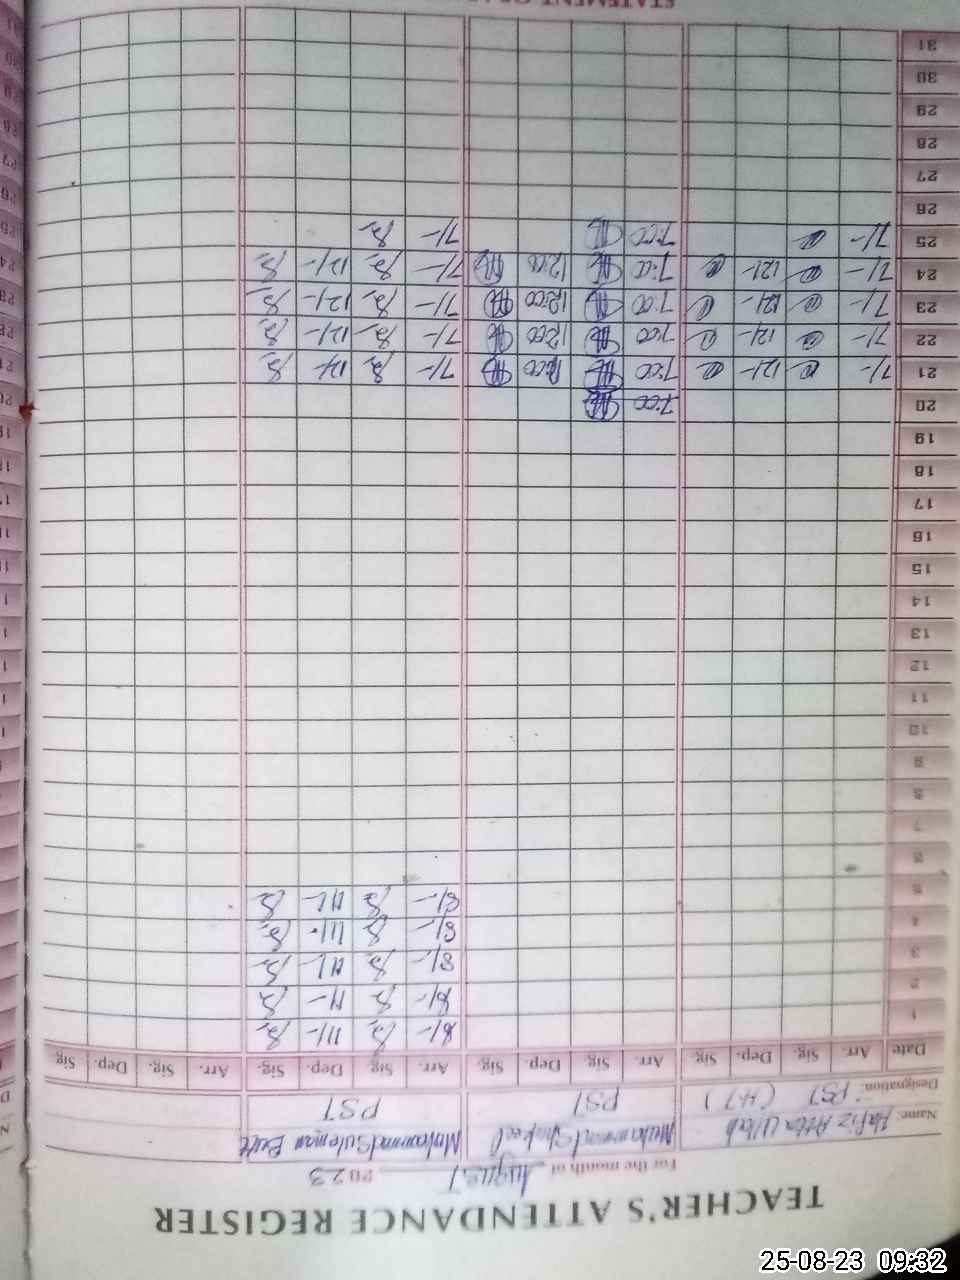 TEACHER'S ATTENDANCE REGISTER
For the month of August 2023
Name: Hafiz Atta Ullah Muhammad Shakeel Mohammad Suleman Butt
Designation: PST (H.T) PST PST
Date Arr. Sig. Dep. Sig Arr. Sig. Dep. Sig. Arr. Sig. Dep. Sig. Arr. Sig. Dep. Sig.
1 8/- 11/-
2 8/- 11-
3 8/- 11/-
4 8/- 11/-
5 8/- 11/-
6
7
8
9
10
11
12
13
14
15
16
17
18
19
20 7:00
21 7/- 12/- 7:00 12:00 7/- 12/-
22 7/- 12/- 7:00 12:00 7/- 12/-
23 7/- 12/- 7:00 12:00 7/- 12/-
24 7/- 12/- 7:00 12:00 7/- 12/-
25 7/- 7:00 7/-
26
27
28
29
30
31
25-08-23 09:32